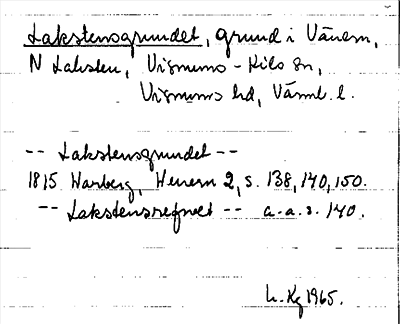 Lakstensgrundet, grund i Vänern,
N Laksten, Visnums-Kils sn,
Visnums hd, Värml. l.
-- Lakstensgrundet --
1815 Warberg, Wenern 2, s. 138, 140, 150.
-- Lakstensrefvet -- a.a.s. 140.
1965.